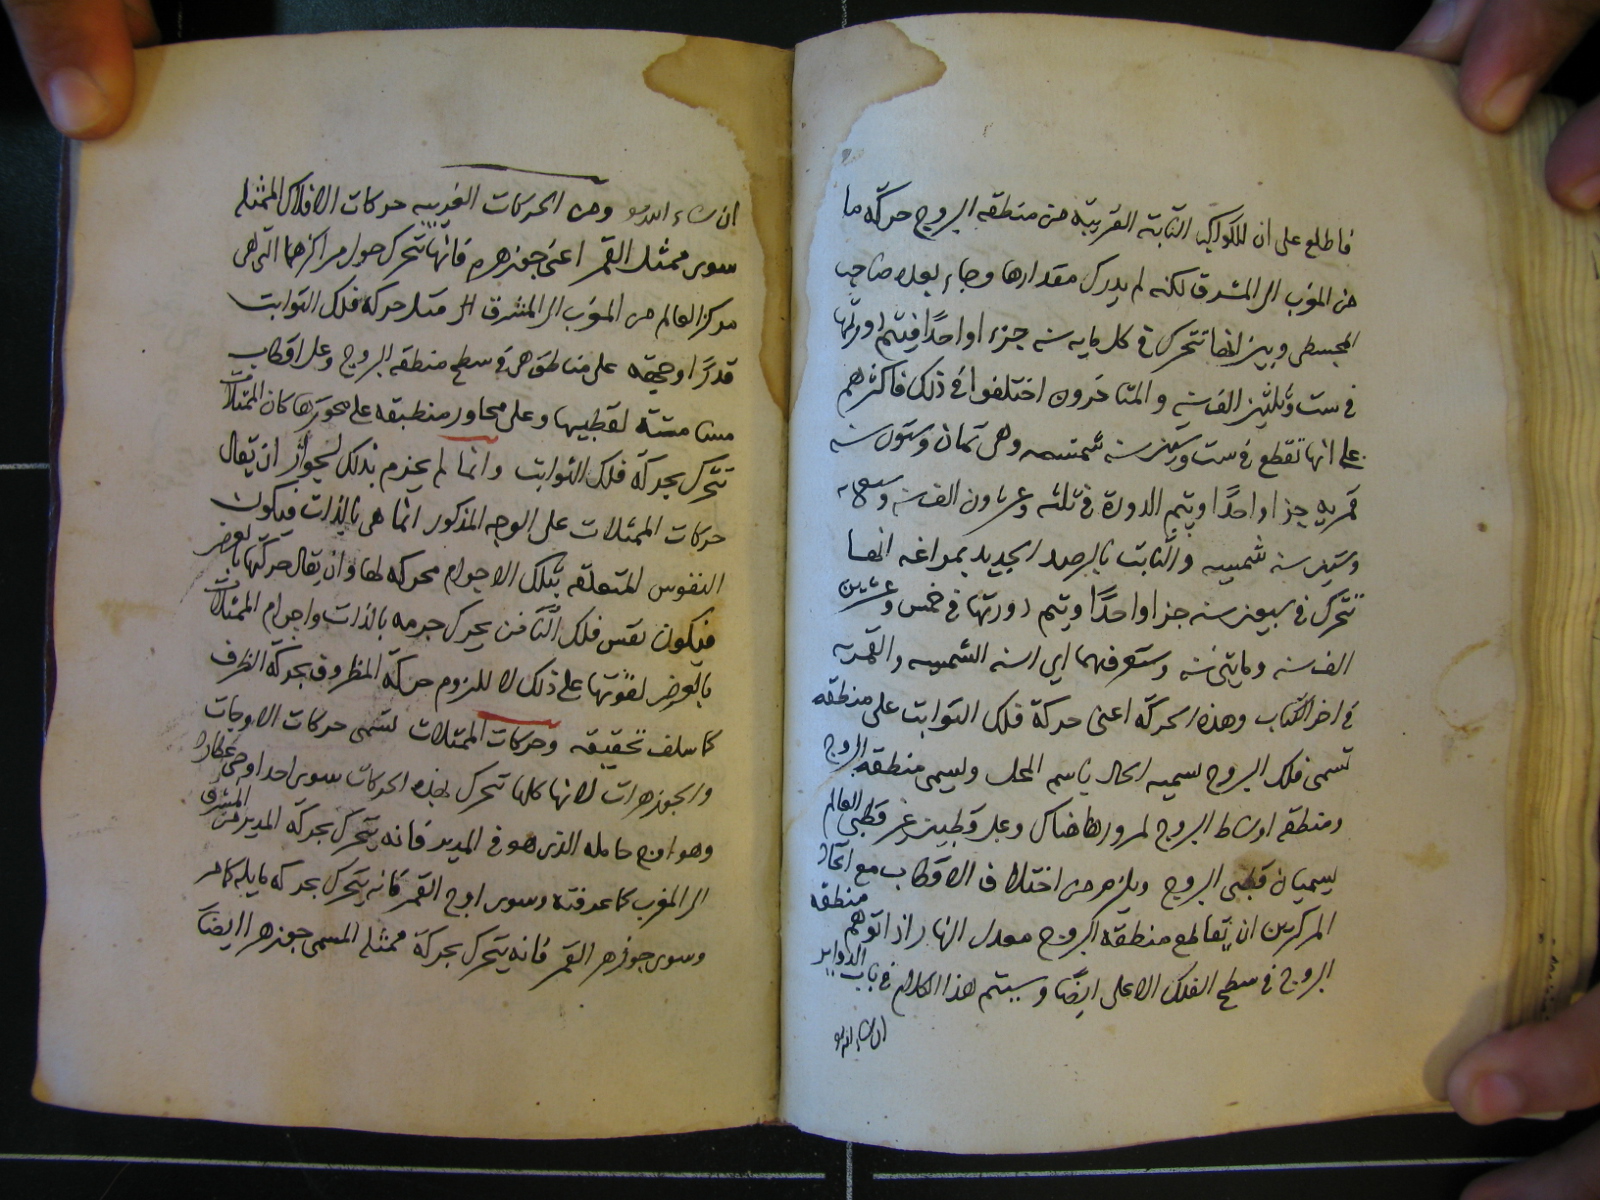 فاطلع على ان للكواكب الثابتة القريبة من منطقة البروج حركة ما
من المغرب الى المشرق لكنه لم يدرك مقدارها وجاء بعده صاحب
المجسطى وبين انها تتحرك فى كل مايه سنه جزء اواحدا فيتم دورتها
فى ست وثلثين الف سنه والمتاخرون اختلفوا فى ذلك فاكثرهم
على انها تقطع فى ست وستين سنه شمسيه وهى ثمان وستون سنه
قمريه جزا واحدًا ويتم الدورة فى ثلثه وعشرون الف سنه وسبعمايه
وستين سنه شمسيه والثابت بالرصد الجديد بمراغه انها
تتحرك فى سبعين سنه جزا واحدًا ويتم دورتها فى خمس وعشرين
الف سنه ومايتى سنه وستعرفهما اى السنه الشمسيه والقمريه
فى اخر الكتاب وهذه الحركه اعنى حركة فلك الثوابت على منطقه
تسمى فلك البروج تسميه الحال باسم المحل ويسمى منطقه البروج
ومنطقه اوساط البروج لمرورها هناك وعلى قطبين غير قطبى العالم
يسميان قطبى البروج ويلزم من اختلاف الاقطاب مع اتحاد
المركزين ان يقاطع منطقه البروج معدل النهار اذا توهم منطقه
البروج فى سطح الفلك الاعلى ايضًا وسيتم هذا الكلام فى باب الدواير
ان شاء الله تع
ان شاء الله تع ومن الحركات الغربيه حركات الافلاك الممثله
سوى ممثل القمر اعنى جوزهره فانها تتحرك حول مراكزها التى هى
مركز العالم من المغرب الى المشرق الا مثل حركة فلك الثوابت
قدرًا وجهة على مناطق هى فى سطح منطقه البروج وعلى اقطاب
مسامته لقطبيها وعلى محاور منطبقه على محورها كان الممثلات
تتحرك بحركة فلك الثوابت وانما لم يجزم بذلك لجواز ان يقال
حركات الممثلات على الوجه المذكور انما هى بالذات فيكون
النفوس المتعلقه بتلك الاجرام محركه لها وان يقال حركتها بالعرض
فيكون نفس فلك الثامن يحرك جرمه بالذات واجرام الممثلات
بالعرض لقوتها على ذلك لا للزوم حركة المظروف بحركة الظرف
كما سلف تحقيقه وحركات الممثلات تسمى حركات الاوجات
والجوزهرات لانها كلها تتحرك بهذه الحركات سوى احد اوجى عطارد
وهو اوج حامله الذى هو فى المدير فانه يتحرك بحركة المدير من المشرق
الى المغرب كما عرفته وسوى اوج القمر فانه يتحرك بحركه مايله كما مر
وسوى جوزهر القمر فانه يتحرك بحركة ممثله المسمى جوزهرا ايضًا